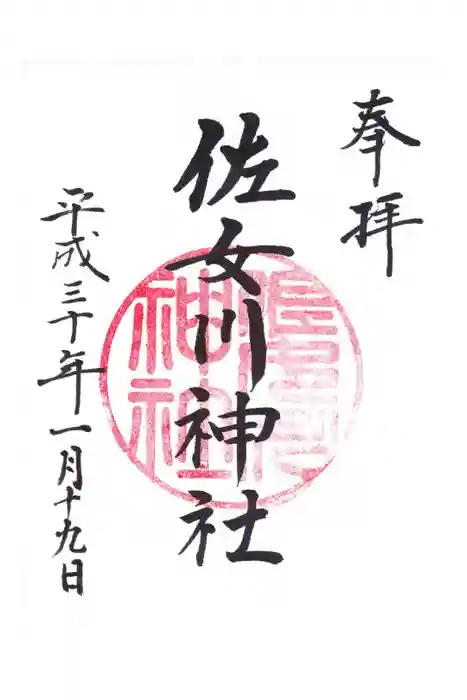 奉拝
佐女川神社
平成三十年一月十九日